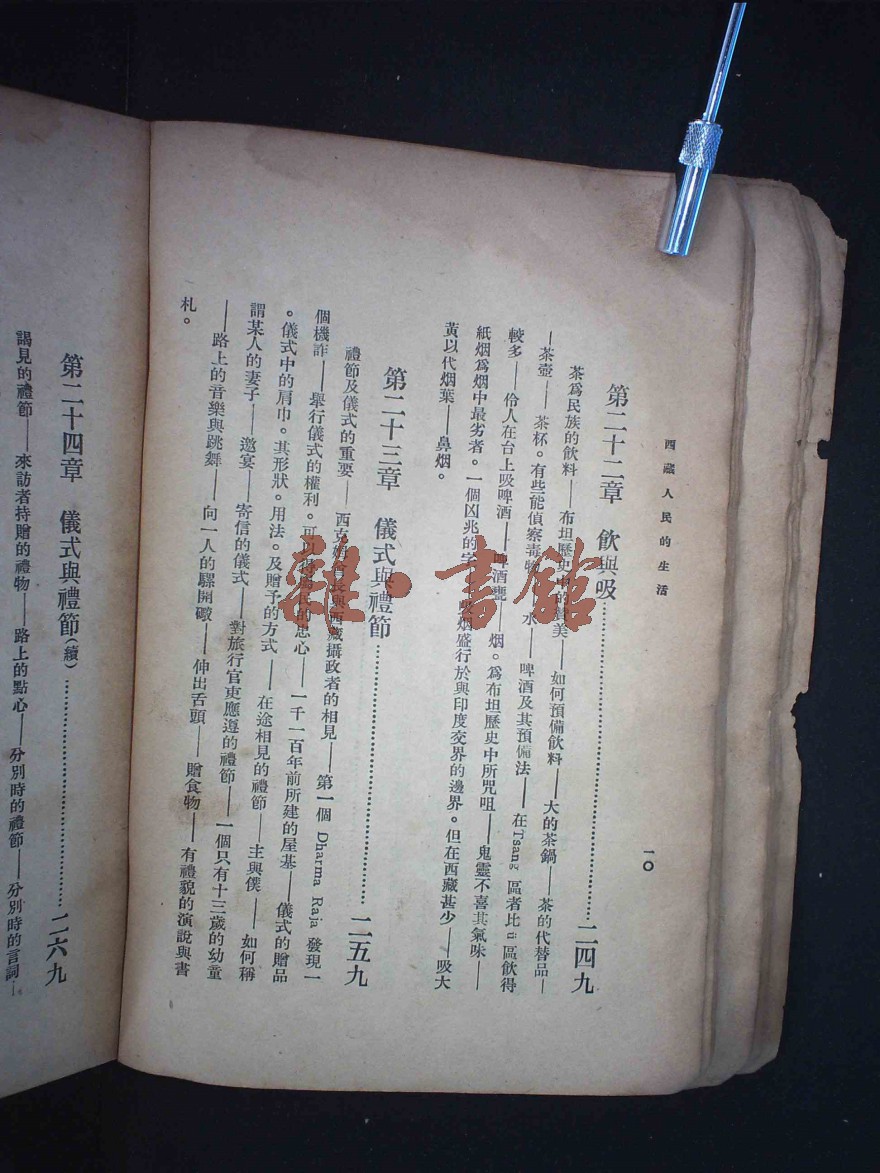 西藏人民的生活
一〇
第二十二章 飲與吸……二四九
茶爲民族的飲料——布坦歷史中的讚美——如何預備飲料——大的茶鍋——茶的代替品—
—茶壺——茶杯。有些能偵察毒物——水——啤酒及其預備法——在Tsang區者比ü區飲得
較多——伶人在台上吸啤酒——啤酒甕——烟。爲布坦歷史中所咒咀——鬼靈不喜其氣味——
紙烟爲烟中最劣者。一個凶兆的字——吸烟盛行於與印度交界的邊界。但在西藏甚少——吸大
黃以代烟葉——鼻烟。
第二十三章 儀式與禮節……二五九
禮節及儀式的重要——西克 與西藏攝政者的相見——第一個 Dharma Raja 發現一
個機詐——舉行儀式的權利。可以 民的忠心——一千一百年前所建的屋基——儀式的贈品
。儀式中的肩巾。其形狀。用法。及贈予的方式——在途相見的禮節——主與僕——如何稱
謂某人的妻子——邀宴——寄信的儀式——對旅行官吏應遵的禮節——一個只有十三歲的幼童
——路上的音樂與跳舞——向一人的騾開礮——伸出舌頭——贈食物——有禮貌的演說與書
札。
第二十四章 儀式與禮節(續)……二六九
謁見的禮節——來訪者持贈的禮物——路上的點心——分別時的禮節——分別時的言詞—
雜·書館